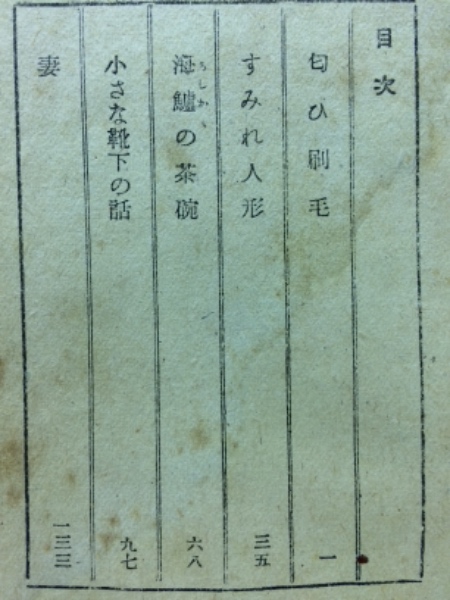 目次
匂ひ刷毛 一
すみれ人形 三五
海鱸の茶碗 六八
小さな靴下の話 九七
妻 一三三